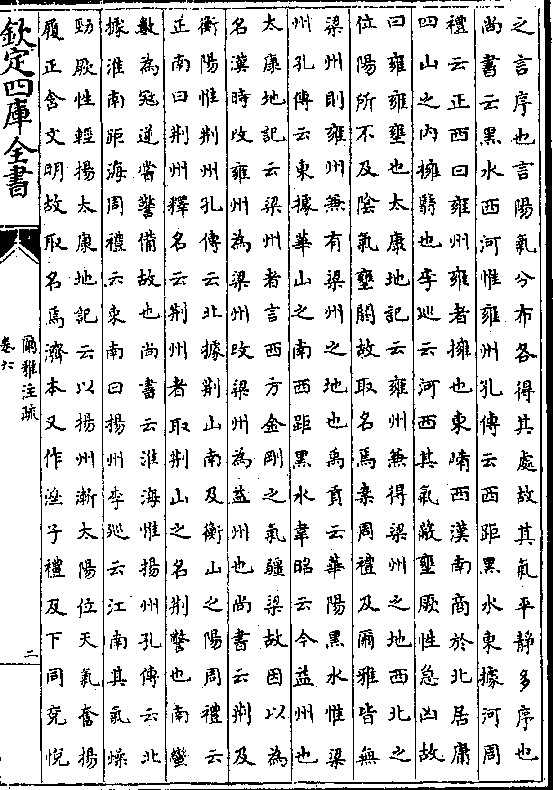 之言序也言陽氣分布各得其處故其氣平静多序也
尚書云黑水西河惟雍州孔傳云西距黑水東據河周
禮云正西曰雍州雍者擁也東崤西漢南商於北居庸
四山之内擁翳也李廵云河西其氣蔽壅厥性急凶故
曰雍雍壅也太康地記云雍州兼得梁州之地西北之
位陽所不及隂氣壅閼故取名焉案周禮及爾雅皆無
梁州則雍州兼有梁州之地也禹貢云華陽黑水惟梁
州孔傳云東據華山之南西距黑水韋昭云今益州也
太康地記云梁州者言西方金剛之氣疆梁故因以為
名漢時改雍州為梁州改梁州為益州也尚書云荆及
衡陽惟荆州孔傳云北據荆山南及衡山之陽周禮云
正南曰荆州釋名云荆州者取荆山之名荆警也南蠻
數為冦逆當警備故也尚書云淮海惟揚州孔傳云北
據淮南距海周禮云東南曰揚州李廵云江南其氣燥
勁厥性輕揚太康地記云以揚州漸太陽位天氣奮揚
履正含文明故取名焉濟本又作泲子禮及下同兖悅
欽定四庫全書
爾雅注疏
卷六
二